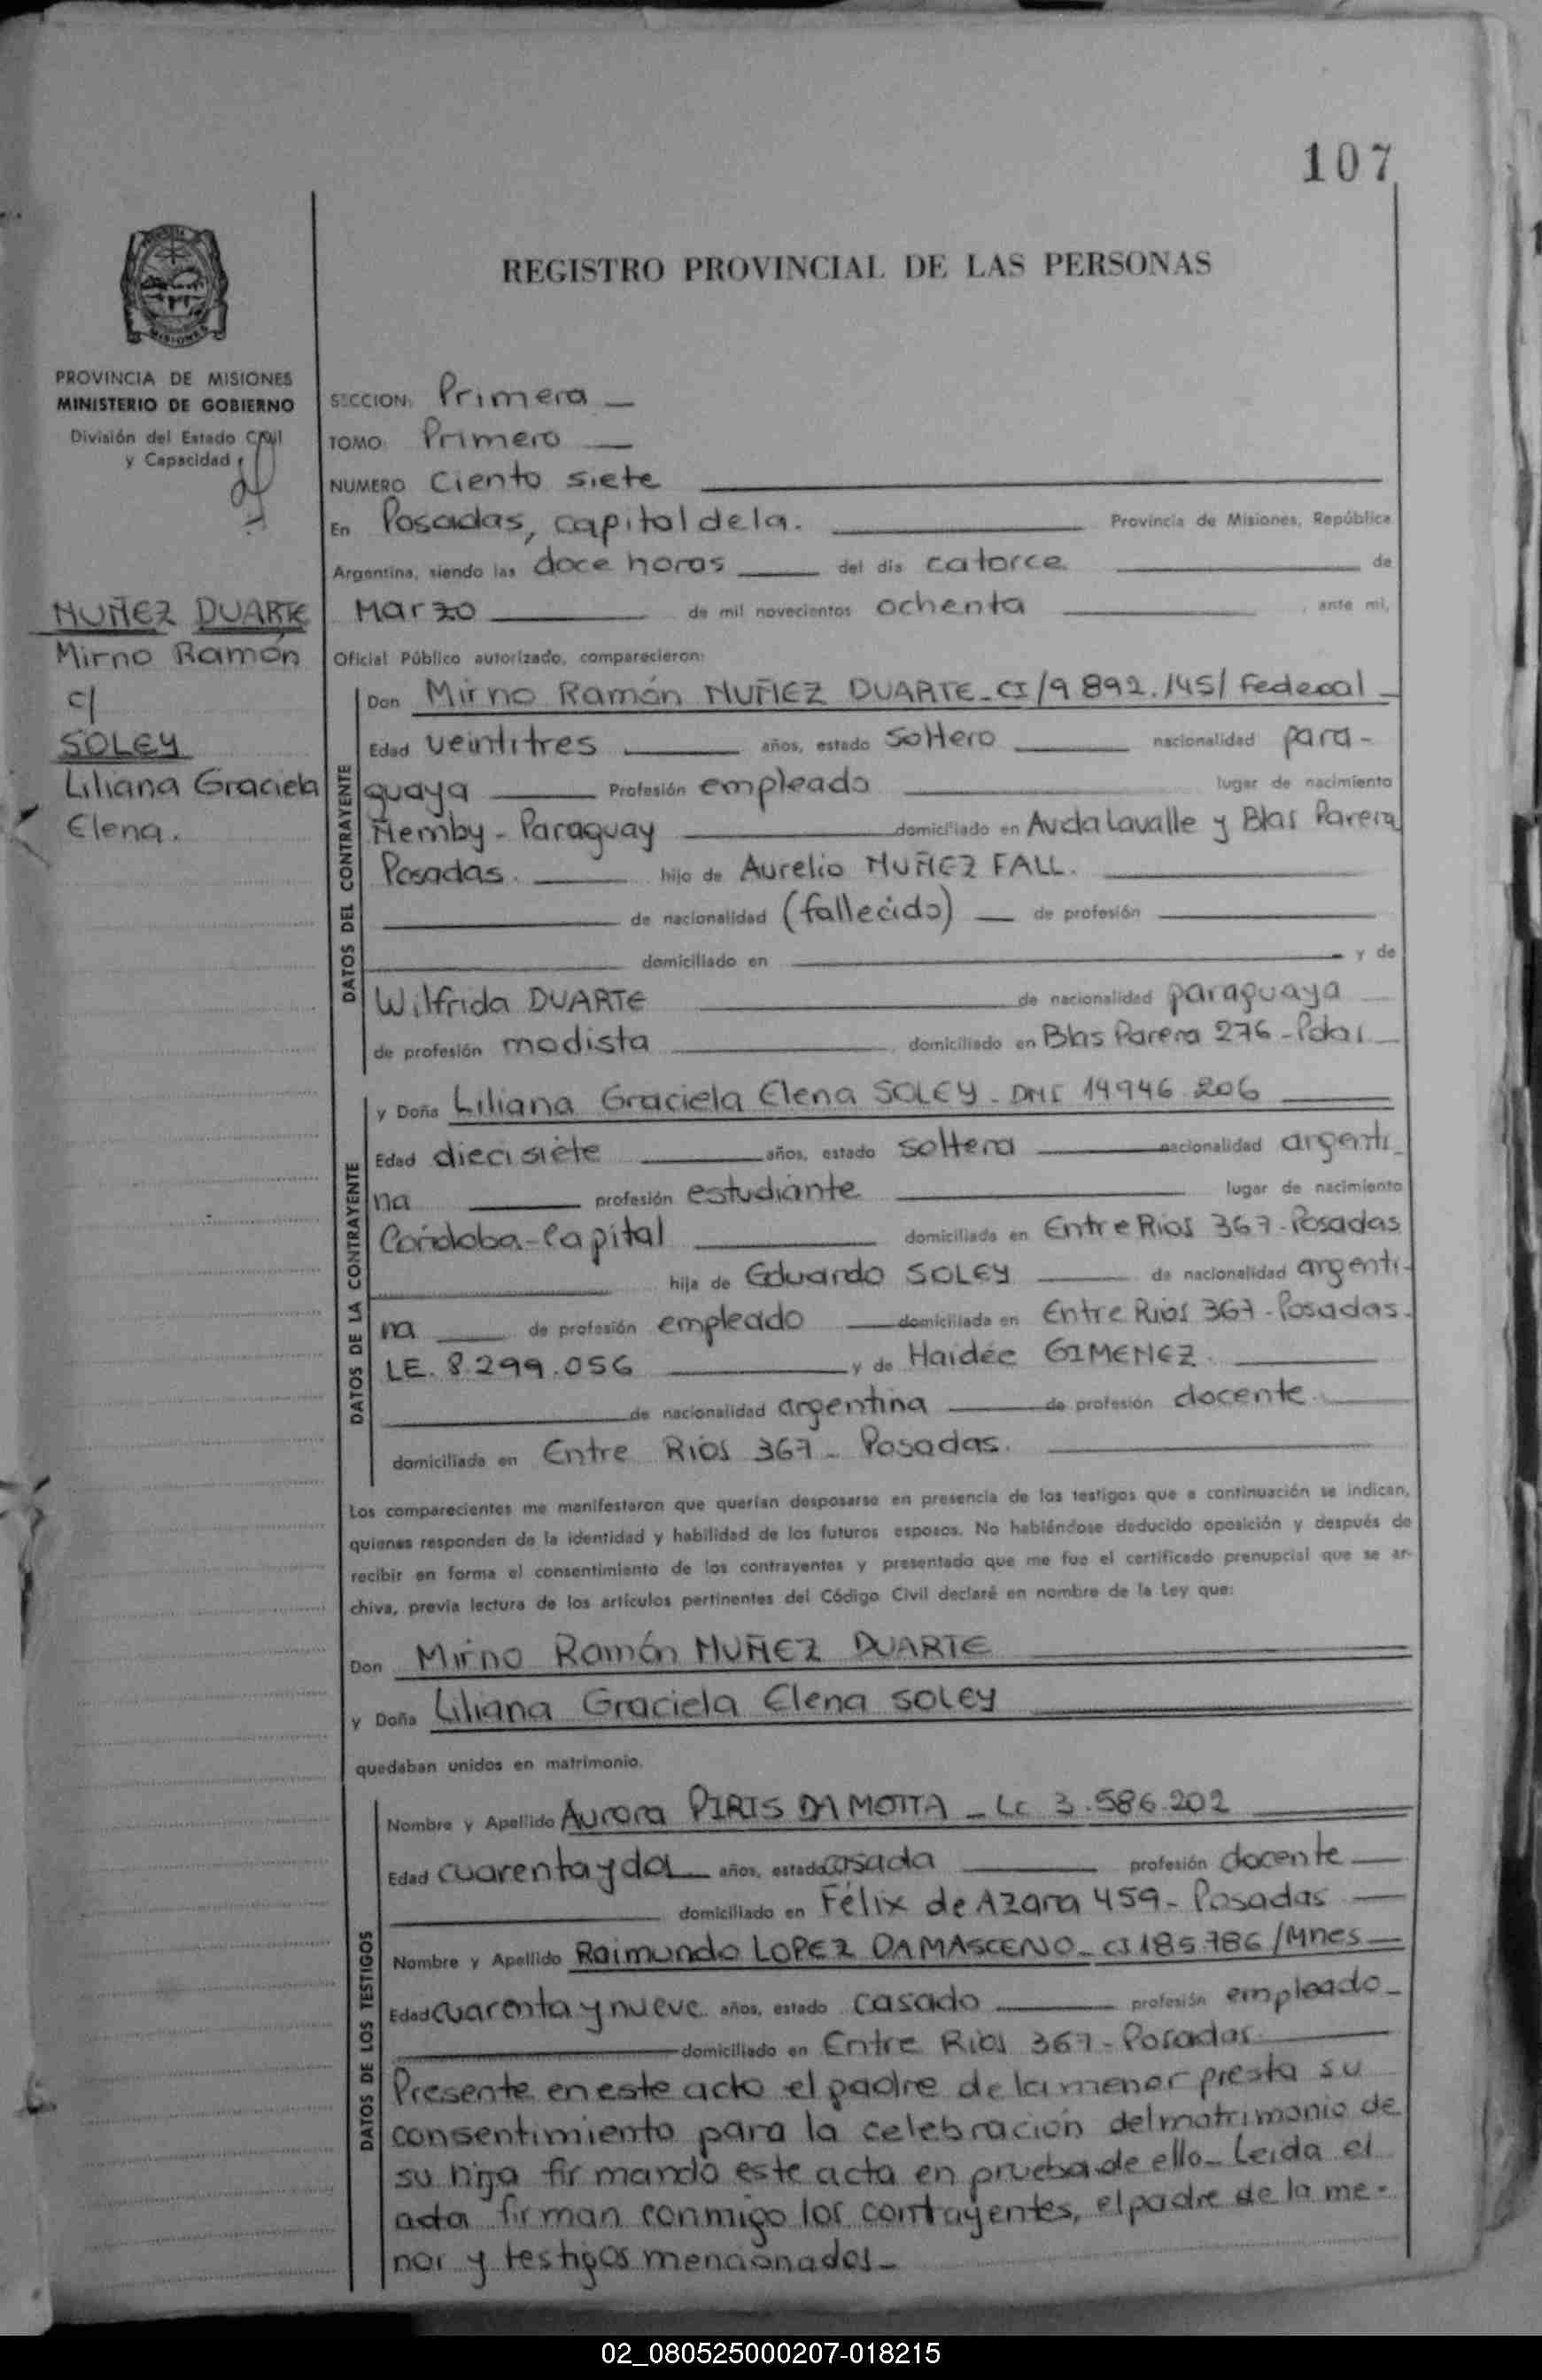 107
REGISTRO PROVINCIAL DE LAS PERSONAS
PROVINCIA DE MISIONES
MINISTERIO DE GOBIERNO
División del Estado Civil
y Capacidad
NUÑEZ DUARTE
Mirno Ramón
c/
SOLEY
Liliana Graciela
Elena.
SECCION: Primera
TOMO: Primero
NUMERO Ciento siete
En Posadas, capital de la. Provincia de Misiones, República
Argentina, siendo las doce horas del día catorce de
Marzo de mil novecientos ochenta, ante mí,
Oficial Público autorizado, comparecieron:
DATOS DEL CONTRAYENTE
Don Mirno Ramón NUÑEZ DUARTE - CI/9 892.145/ Federal
Edad veintitres años, estado soltero nacionalidad para-
guaya Profesión empleado lugar de nacimiento
Ñemby - Paraguay domiciliado en Avda Lavalle y Blas Parera
Posadas. hijo de Aurelio NUÑEZ FALL.
de nacionalidad (fallecido) de profesión
domiciliado en y de
Wilfrida DUARTE de nacionalidad paraguaya
de profesión modista domiciliado en Blas Parera 276 - Pdas.
DATOS DE LA CONTRAYENTE
y Doña Liliana Graciela Elena SOLEY - DNI 14946.206
Edad diecisiete años, estado soltera nacionalidad argenti-
na profesión estudiante lugar de nacimiento
Córdoba - Capital domiciliada en Entre Rios 367 - Posadas
hija de Eduardo SOLEY de nacionalidad argenti-
na de profesión empleado domiciliada en Entre Rios 367 - Posadas.
LE. 8.299.056 y de Haidée GIMENEZ.
de nacionalidad argentina de profesión docente.
domiciliada en Entre Rios 367 - Posadas.
Los comparecientes me manifestaron que querían desposarse en presencia de los testigos que a continuación se indican,
quienes responden de la identidad y habilidad de los futuros esposos. No habiéndose deducido oposición y después de
recibir en forma el consentimiento de los contrayentes y presentado que me fue el certificado prenupcial que se ar-
chiva, previa lectura de los artículos pertinentes del Código Civil declaré en nombre de la Ley que:
Don Mirno Ramón NUÑEZ DUARTE
y Doña Liliana Graciela Elena SOLEY
quedaban unidos en matrimonio.
DATOS DE LOS TESTIGOS
Nombre y Apellido Aurora PIRIS DA MOTTA - LC 3.586.202
Edad cuarenta y dos años, estado casada profesión docente
domiciliado en Félix de Azara 459 - Posadas
Nombre y Apellido Raimundo LOPEZ DAMASCENO - CI 185.786/Mnes
Edad cuarenta y nueve años, estado casado profesión empleado
domiciliado en Entre Rios 367 - Posadas.
Presente en este acto el padre de la menor presta su
consentimiento para la celebración del matrimonio de
su hija firmando este acta en prueba de ello - Leida el
acta firman conmigo los contrayentes, el padre de la me-
nor y testigos mencionados -
02_080525000207-018215